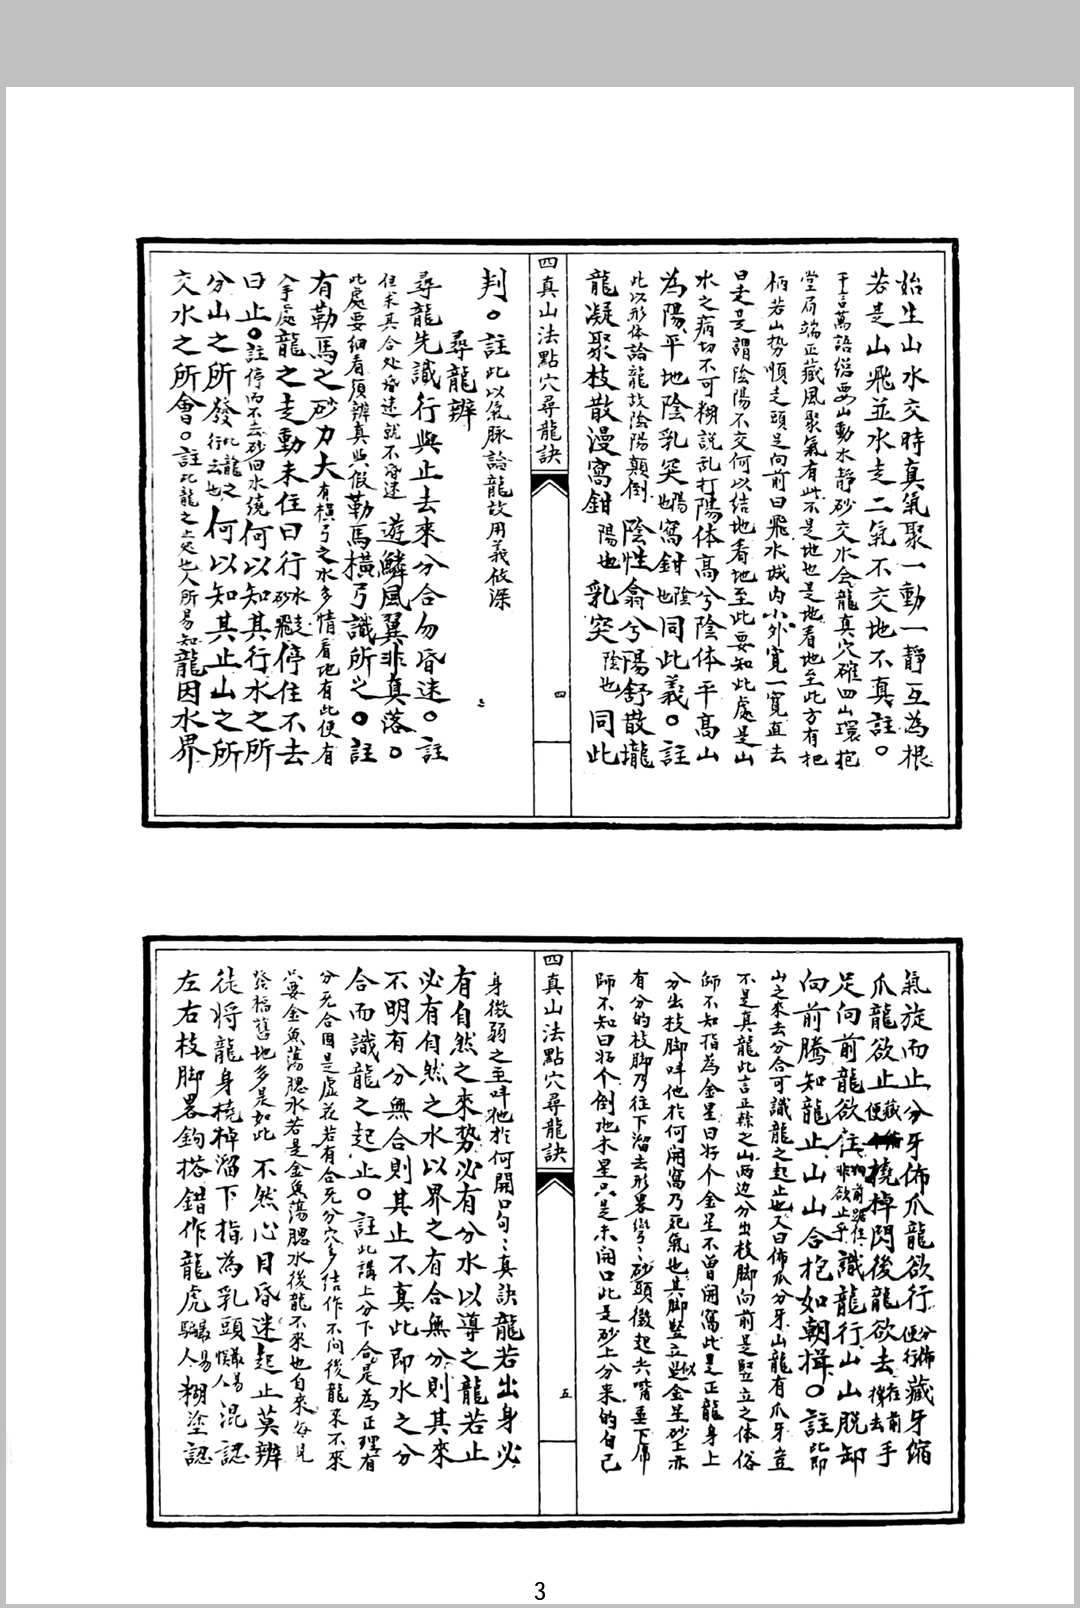 始生山水交時真氣聚一動一靜互為根
若是山飛並水走二氣不交地不真註。
千言萬語緫要山動水靜砂交水會龍真穴確四山環抱
堂局端正藏風聚氣有此不是地也是地看地至此方有把
柄若山势順走頭足向前曰飛水城内小外寬一寬直去
曰走是謂陰陽不交何以结地看地至此要知此處是山
水之病切不可糊說乱打陽体高兮陰体平高山
為陽平地陰乳突陽也窩鉗陰也同此義。註
此以形体論龍故陰陽顛倒陰性翕兮陽舒散壠
龍凝聚枝散漫窩鉗陽也乳突陰也同此
四真山法點穴尋龍訣
四
判。註此以氣脉論龍故用義攸深
尋龍辨
尋龍先識行與止去來分合勿昏迷。註
但求其合处昏迷就不昏迷遊鱗風翼非真落。
此處要细看須辨真與假勒馬横弓識所之。註
有勒馬之砂力大有横弓之水多情看地有此便有
入手處龍之走動未住曰行水走砂飛停住不去
曰止。註停而不去砂回水繞何以知其行水之所
分山之所發行龍之去也何以知其止山之所
交水之所會。註此龍之止处也人所易知龍因水界
氣旋而止分牙佈爪龍欲行分佈便行藏牙縮
爪龍欲止藏便橈棹閃後龍欲去在前棹去手
足向前龍欲住向前踞伏非欲止乎識龍行山山脱卸
向前騰知龍止山山合抱如朝揖。註此即
山之來去分合可識龍之起止也又曰佈爪分牙山龍有爪牙豈
不是真龍此言正條之山两边分出枝脚向前是竪立之体俗
師不知指為金星曰好个金星不曾開窩此是正龍身上
分出枝脚呌他於何開窩乃死氣也其脚竪立似是金星砂上亦
有分的枝脚乃往下溜去形畧彎彎砂頭微起尖嘴垂下席
師不知曰好个倒地木星只是未開口此是砂上分來的自己
四真山法點穴尋龍訣
五
身微弱之至呌他於何開口句句真訣龍若出身必
有自然之來势必有分水以導之龍若止
必有自然之水以界之有合無分則其來
不明有分無合則其止不真此即水之分
合而識龍之起止。註此講上分下合是為正理有
分无合固是虚花若有合无分穴多结作不问後龍來不來
只要金魚蕩腮水若是金魚蕩腮水後龍不來也自來每見
發福舊地多是如此不然心目昏迷起止莫辨
徒将龍身橈棹溜下指為乳頭最易惧人混認
左右枝脚畧鈎搭錯作龍虎最易騙人糊塗認
3